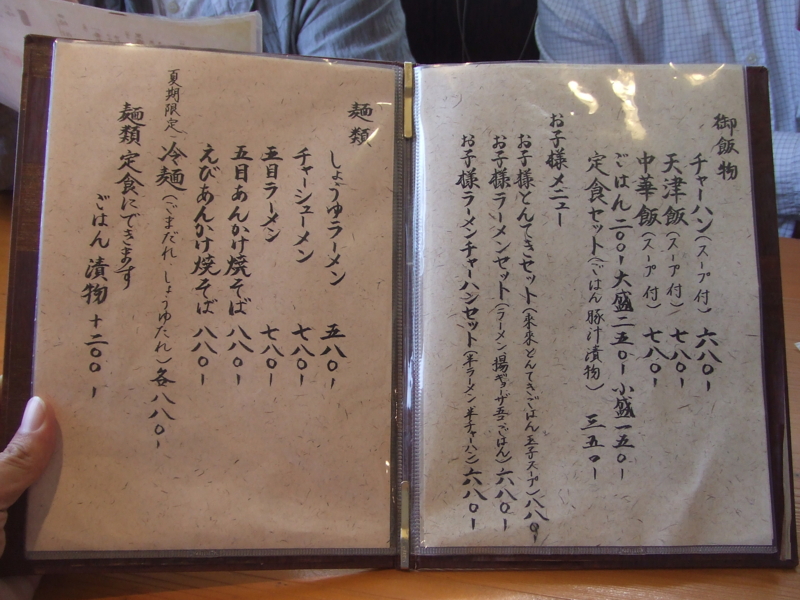 御飯物
チャーハン(スープ付) 六八〇ー
天津飯(スープ付) 七八〇ー
中華飯(スープ付) 七八〇ー
ごはん 二〇〇ー 大盛二五〇ー 小盛一五〇ー
定食セット(ごはん 豚汁 漬物) 三五〇ー
お子様メニュー
お子様とんてきセット(来来とんてきごはん玉子スープ)八八〇ー
お子様ラーメンセット(ラーメン 揚ギョーザ 吾ごはん)六八〇ー
お子様ラーメンチャーハンセット(半ラーメン 半チャーハン)六八〇ー
麺類
しょうゆラーメン 五八〇ー
チャーシューメン 七八〇ー
五目ラーメン 七八〇ー
五目あんかけ焼そば 八八〇ー
えびあんかけ焼そば 八八〇ー
夏期限定 冷麺(ごまだれ・しょうゆだれ)各八八〇ー
麺類 定食にできます
ごはん 漬物 +二〇〇ー